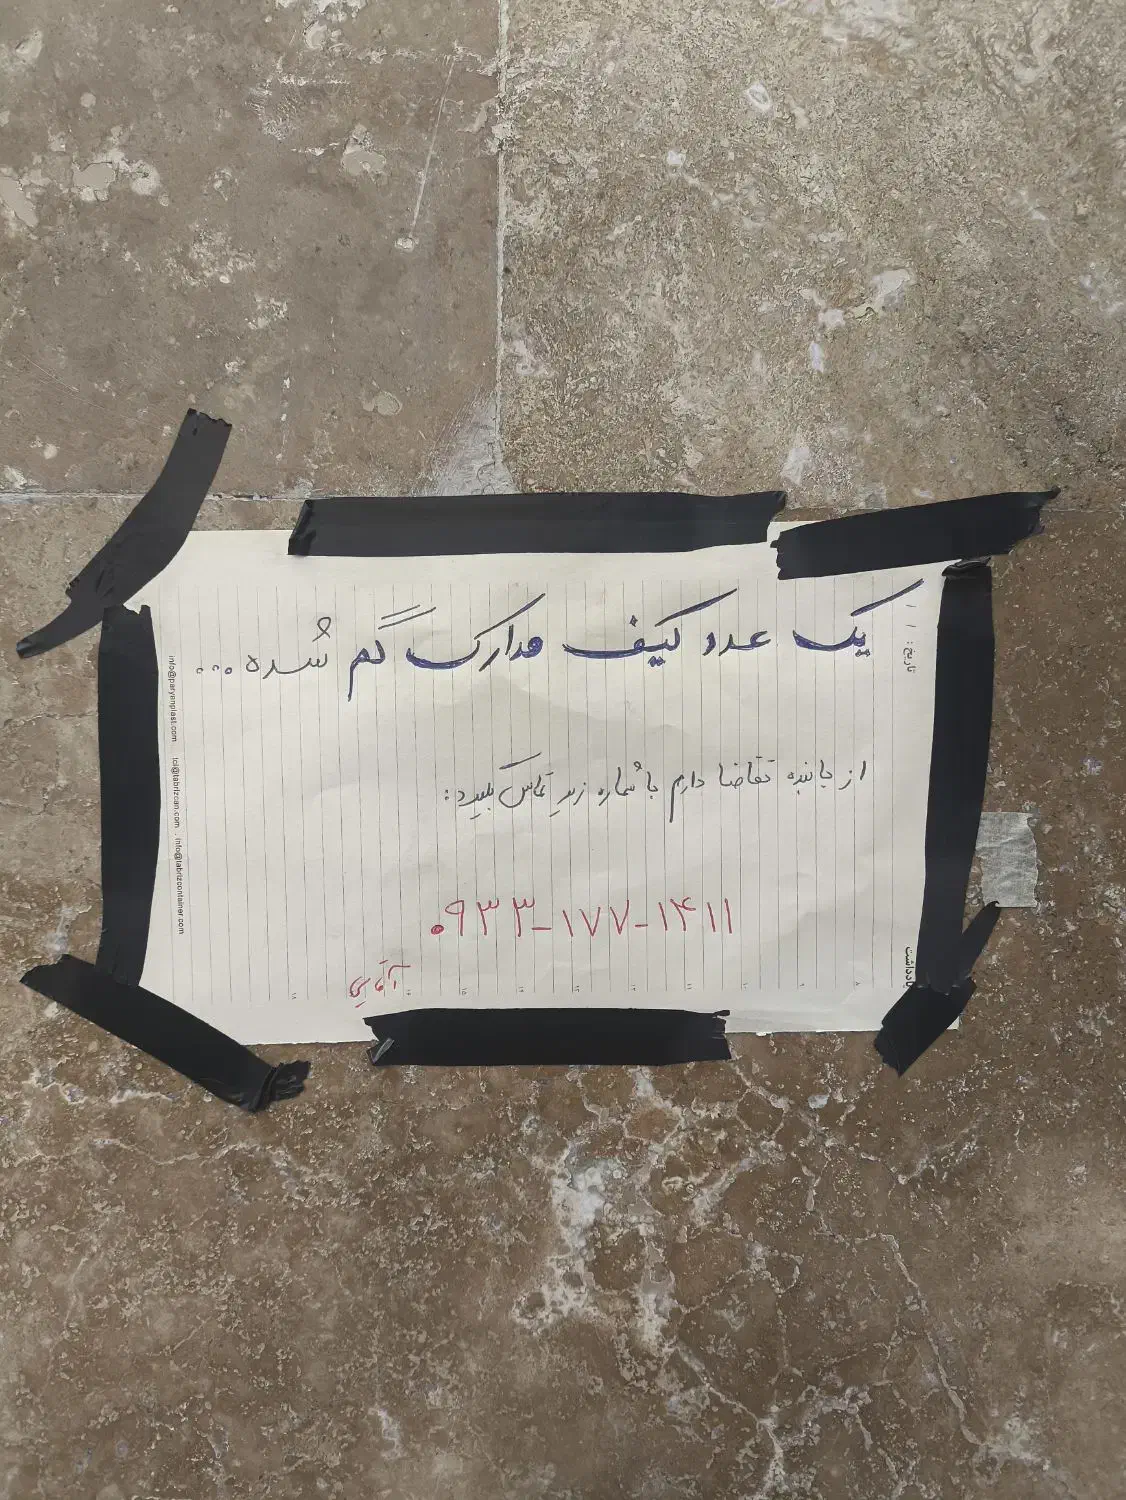 یک عدد کیف مدارک گم شده...
از یابنده تقاضا دارم با شماره زیر تماس بگیرد:
۰۹۳۳-۱۷۷-۱۴۱۱
تاریخ: / /
یادداشت
info@paryanplast.com tci@tabrizcan.com . info@tabrizcontainer.com